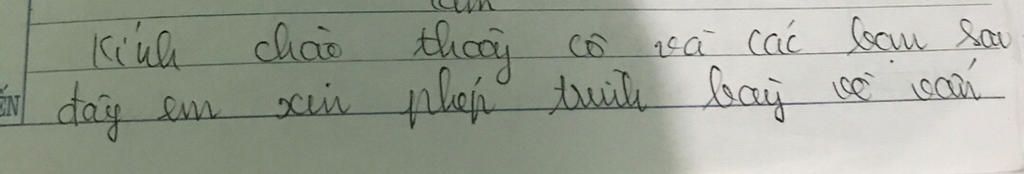 Kính chào thầy cô và các bạn sau
đây em xin phép trình bày về vấn